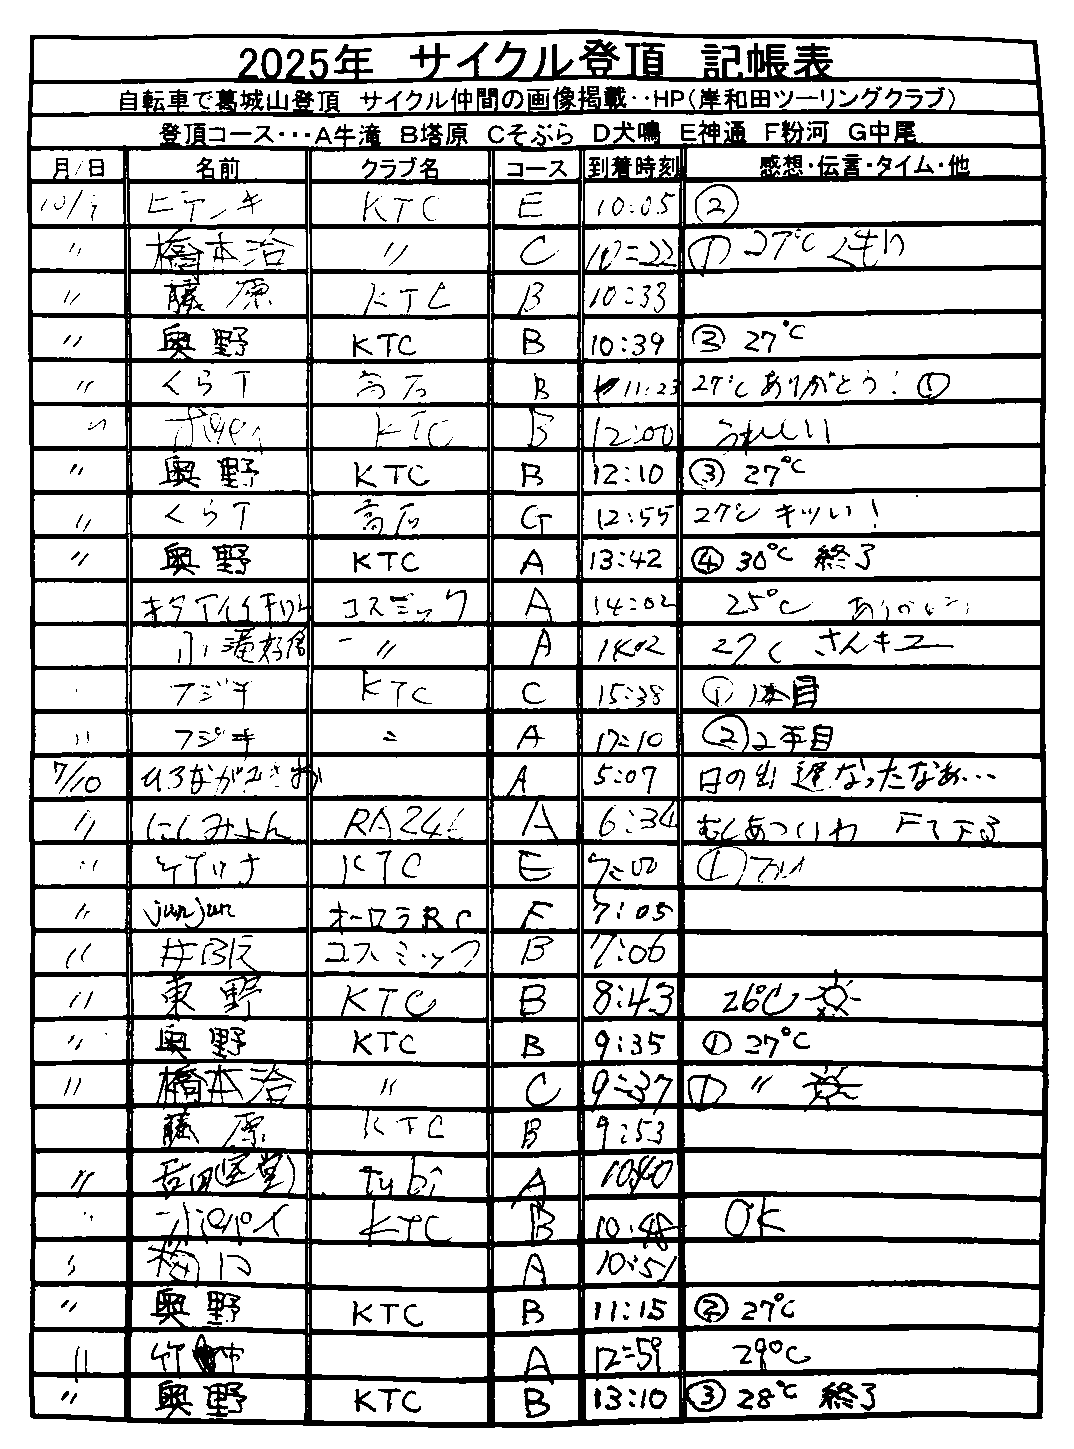 2025年 サイクル登頂 記帳表
自転車で葛城山登頂 サイクル仲間の画像掲載‥HP(岸和田ツーリングクラブ)
登頂コース･･･A牛滝 B塔原 Cそぶら D犬鳴 E神通 F粉河 G中尾
月/日 名前 クラブ名 コース 到着時刻 感想・伝言・タイム・他
KTC E 10:05 ②
〃 橋本治 〃 C 10:22 ① 27℃ くもり
〃 藤原 KTC B 10:33
〃 奥野 KTC B 10:39 ③ 27℃
〃 くらT 高石 B 11:23 27℃ ありがとう! ①
〃 KTC B 12:00 うれしい
〃 奥野 KTC B 12:10 ③ 27℃
〃 くらT 高石 G 12:55 27℃ キツい!
〃 奥野 KTC A 13:42 ④ 30℃ 終了
コスミック A 14:02 25℃
小滝 〃 A 14:02 27℃ さんキュー
フジキ KTC C 15:38 ① 1本目
〃 フジキ 〃 A 17:10 ② 2本目
7/10 A 5:07 日の出 遅なったなあ…
〃 にしみよん A 6:34 むしあついわ
〃 KTC E 7:00 ①
〃 junjun オーロラRC F 7:05
〃 コスミック B 7:06
〃 東野 KTC B 8:43 26℃
〃 奥野 KTC B 9:35 ① 27℃
〃 橋本治 〃 C 9:37 ① 〃
藤原 KTC B 9:53
〃 吉田 tubi A 10:40
〃 KTC B 10:48 OK
〃 A 10:51
〃 奥野 KTC B 11:15 ② 27℃
〃 竹中 A 12:59 29℃
〃 奥野 KTC B 13:10 ③ 28℃ 終了